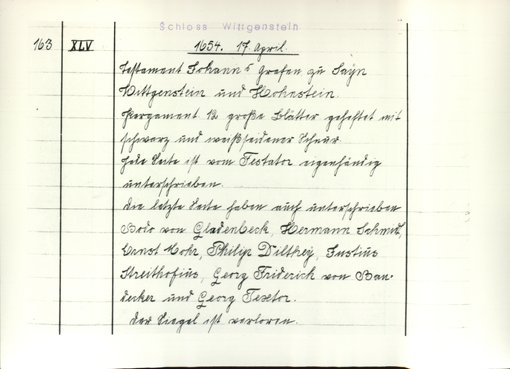 Schloss Wittgenstein
163 XLV 1654. 17 April.
Testament Johanns Grafen zu Sayn
Wittgenstein und Hohnstein.
Pergament 12 große Blätter geheftet mit
schwarz und weißseidener Schnur.
Jede Seite ist vom Testator eigenhändig
unterschrieben.
Die letzte Seite haben auch unterschrieben
Bodo von Gladenbeck, Hermann Schmitz,
Ernst Mohr, Philip Dilthej, Justius
Streithofius, Georg Friderick von Ban-
decker und Georg Textor.
Das Siegel ist verloren.